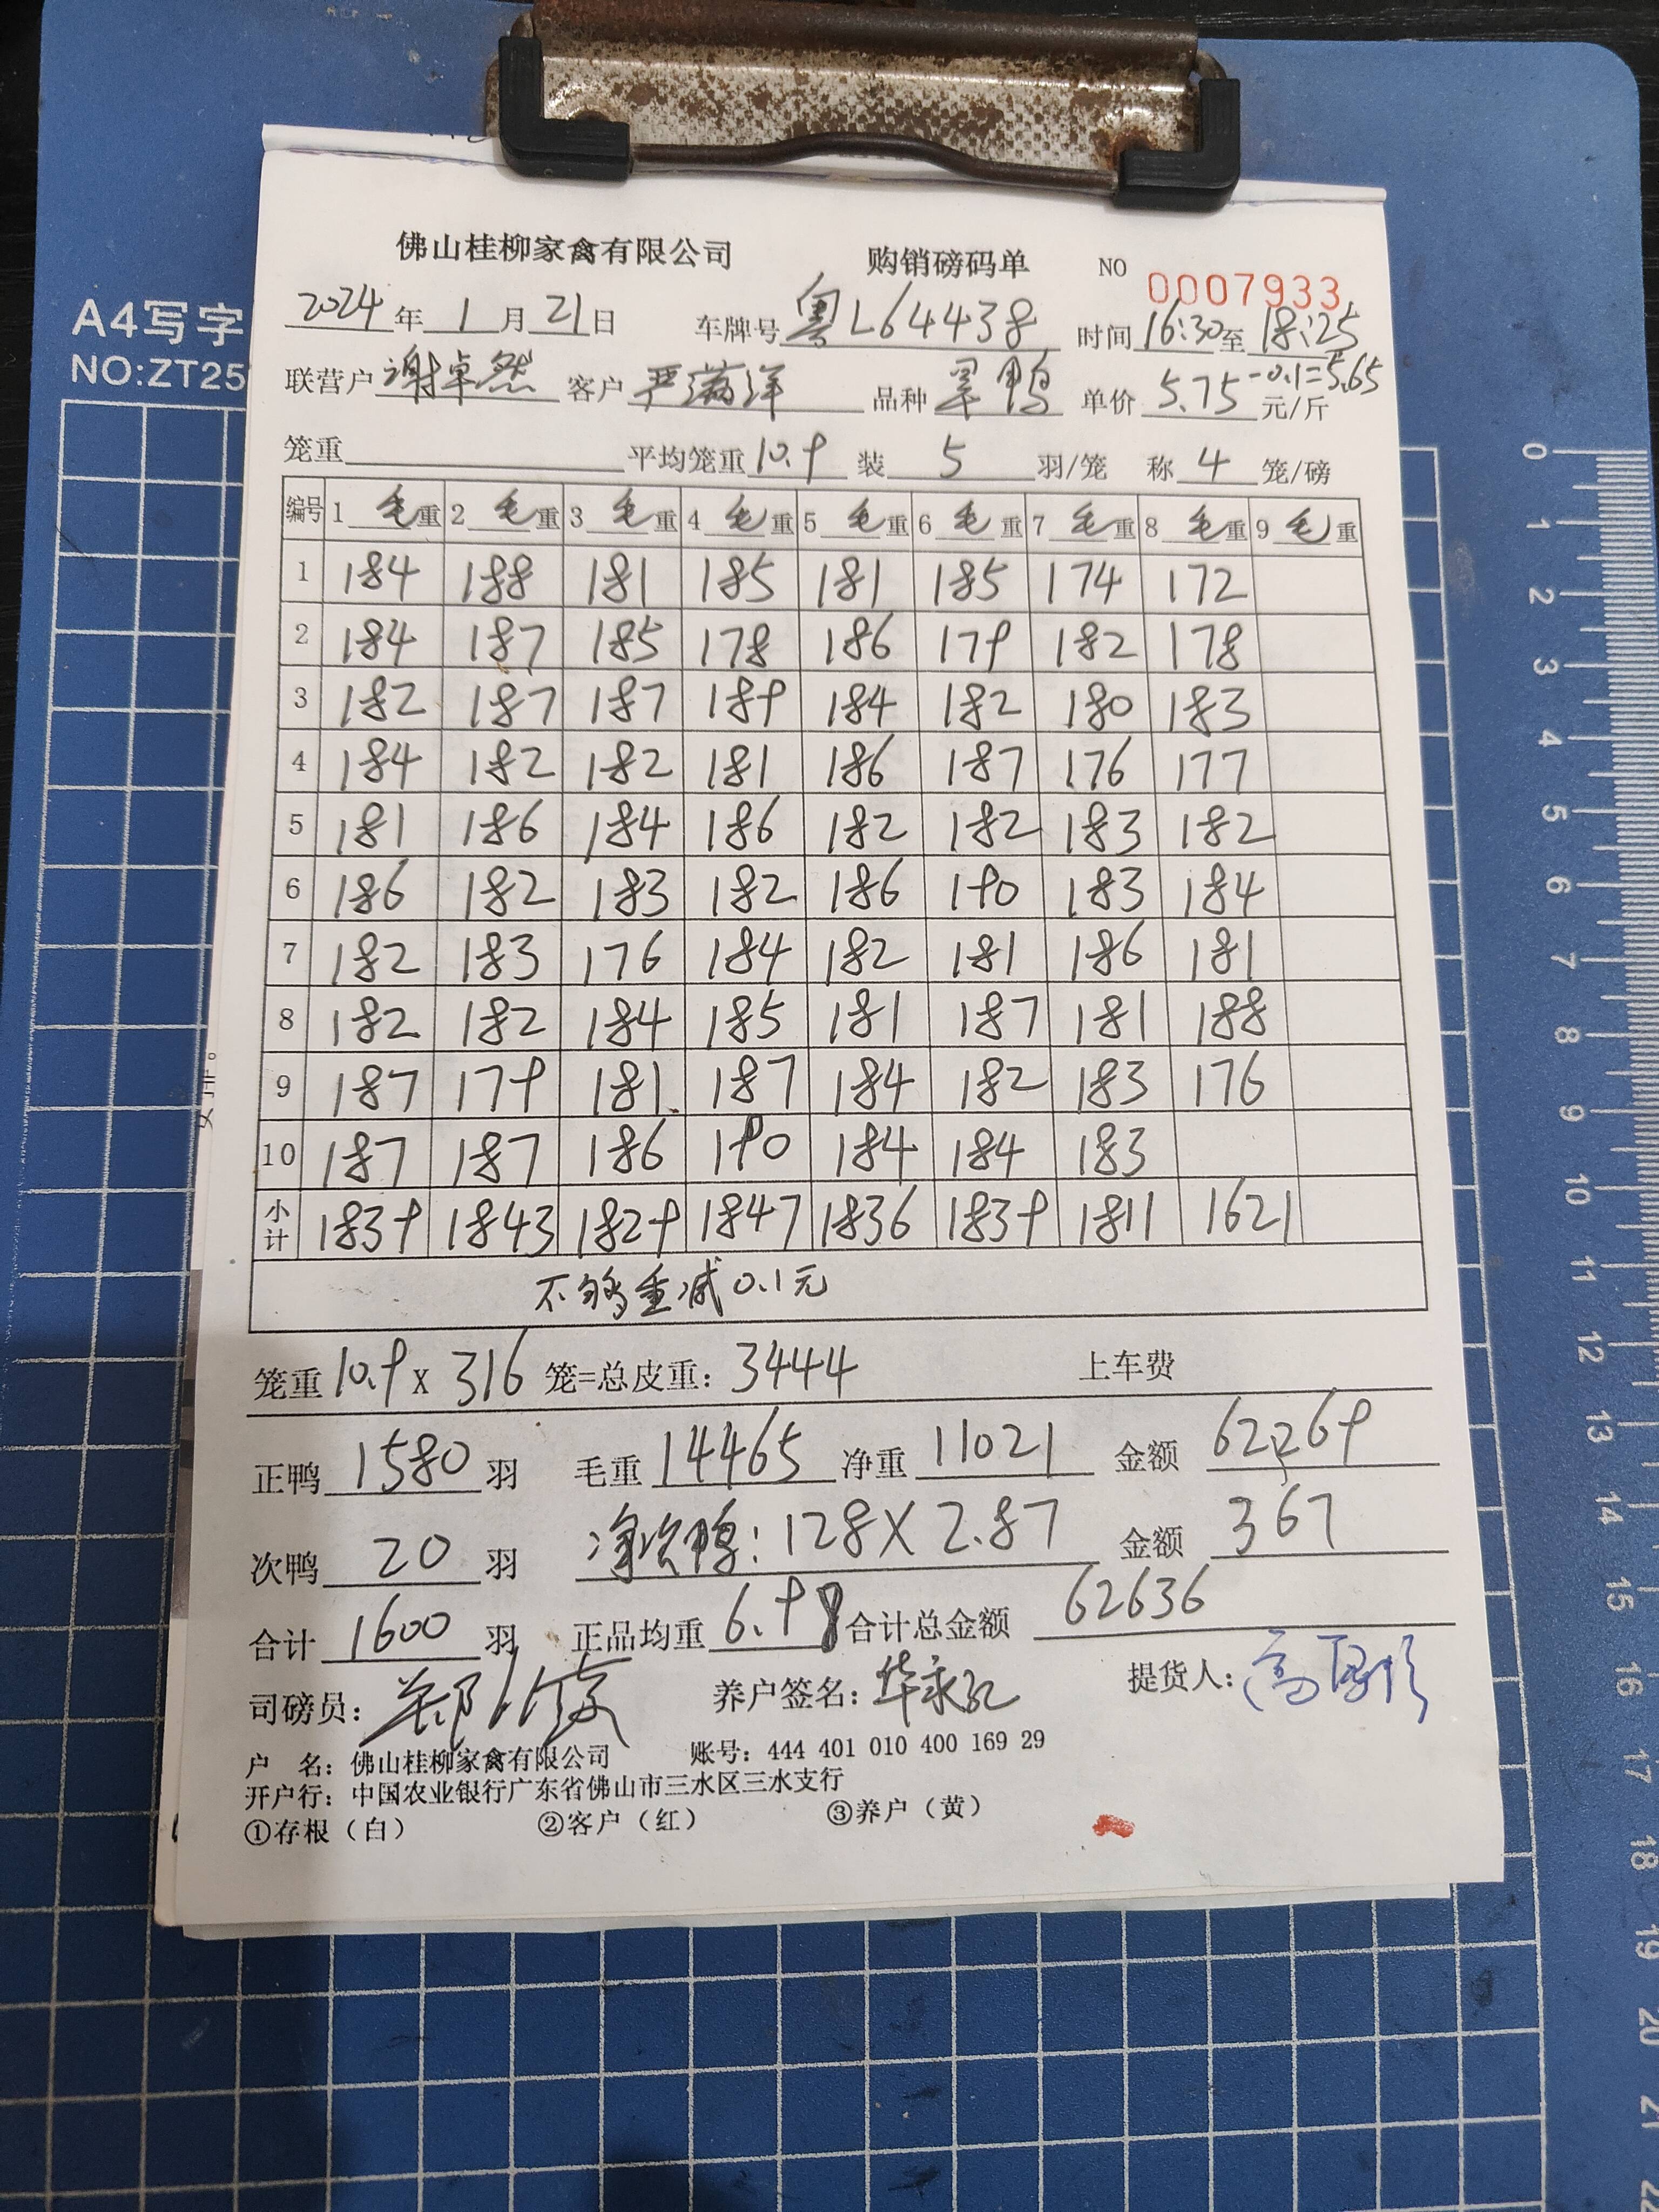 佛山桂柳家禽有限公司 购销磅码单 NO 0007933
A4写字
NO:ZT25
2024年1月21日 车牌号 粤L64438 时间 16:30 至 18:25
联营户 谢卓然 客户 严满洋 品种 单价 5.75-0.1=5.65 元/斤
笼重 平均笼重 10.9 装 5 羽/笼 称 4 笼/磅
编号 1 毛重 2 毛重 3 毛重 4 毛重 5 毛重 6 毛重 7 毛重 8 毛重 9 毛重
1 184 188 181 185 181 185 174 172
2 184 187 185 178 186 179 182 178
3 182 187 187 189 184 182 180 183
4 184 182 182 181 186 187 176 177
5 181 186 184 186 182 182 183 182
6 186 182 183 182 186 190 183 184
7 182 183 176 184 182 181 186 181
8 182 182 184 185 181 187 181 188
9 187 179 181 187 184 182 183 176
10 187 187 186 190 184 184 183
小计 1839 1843 1829 1847 1836 1839 1811 1621
不够重减0.1元
笼重 10.9 X 316 笼=总皮重: 3444 上车费
正鸭 1580 羽 毛重 14465 净重 11021 金额 62269
次鸭 20 羽 净次鸭: 128X2.87 金额 367
合计 1600 羽 正品均重 6.98 合计总金额 62636
司磅员: 养户签名: 提货人:
户 名: 佛山桂柳家禽有限公司 账号: 444 401 010 400 169 29
开户行: 中国农业银行广东省佛山市三水区三水支行
①存根（白） ②客户（红） ③养户（黄）
0
1
2
3
4
5
6
7
8
9
10
11
12
13
14
15
16
17
18
19
20
21
22